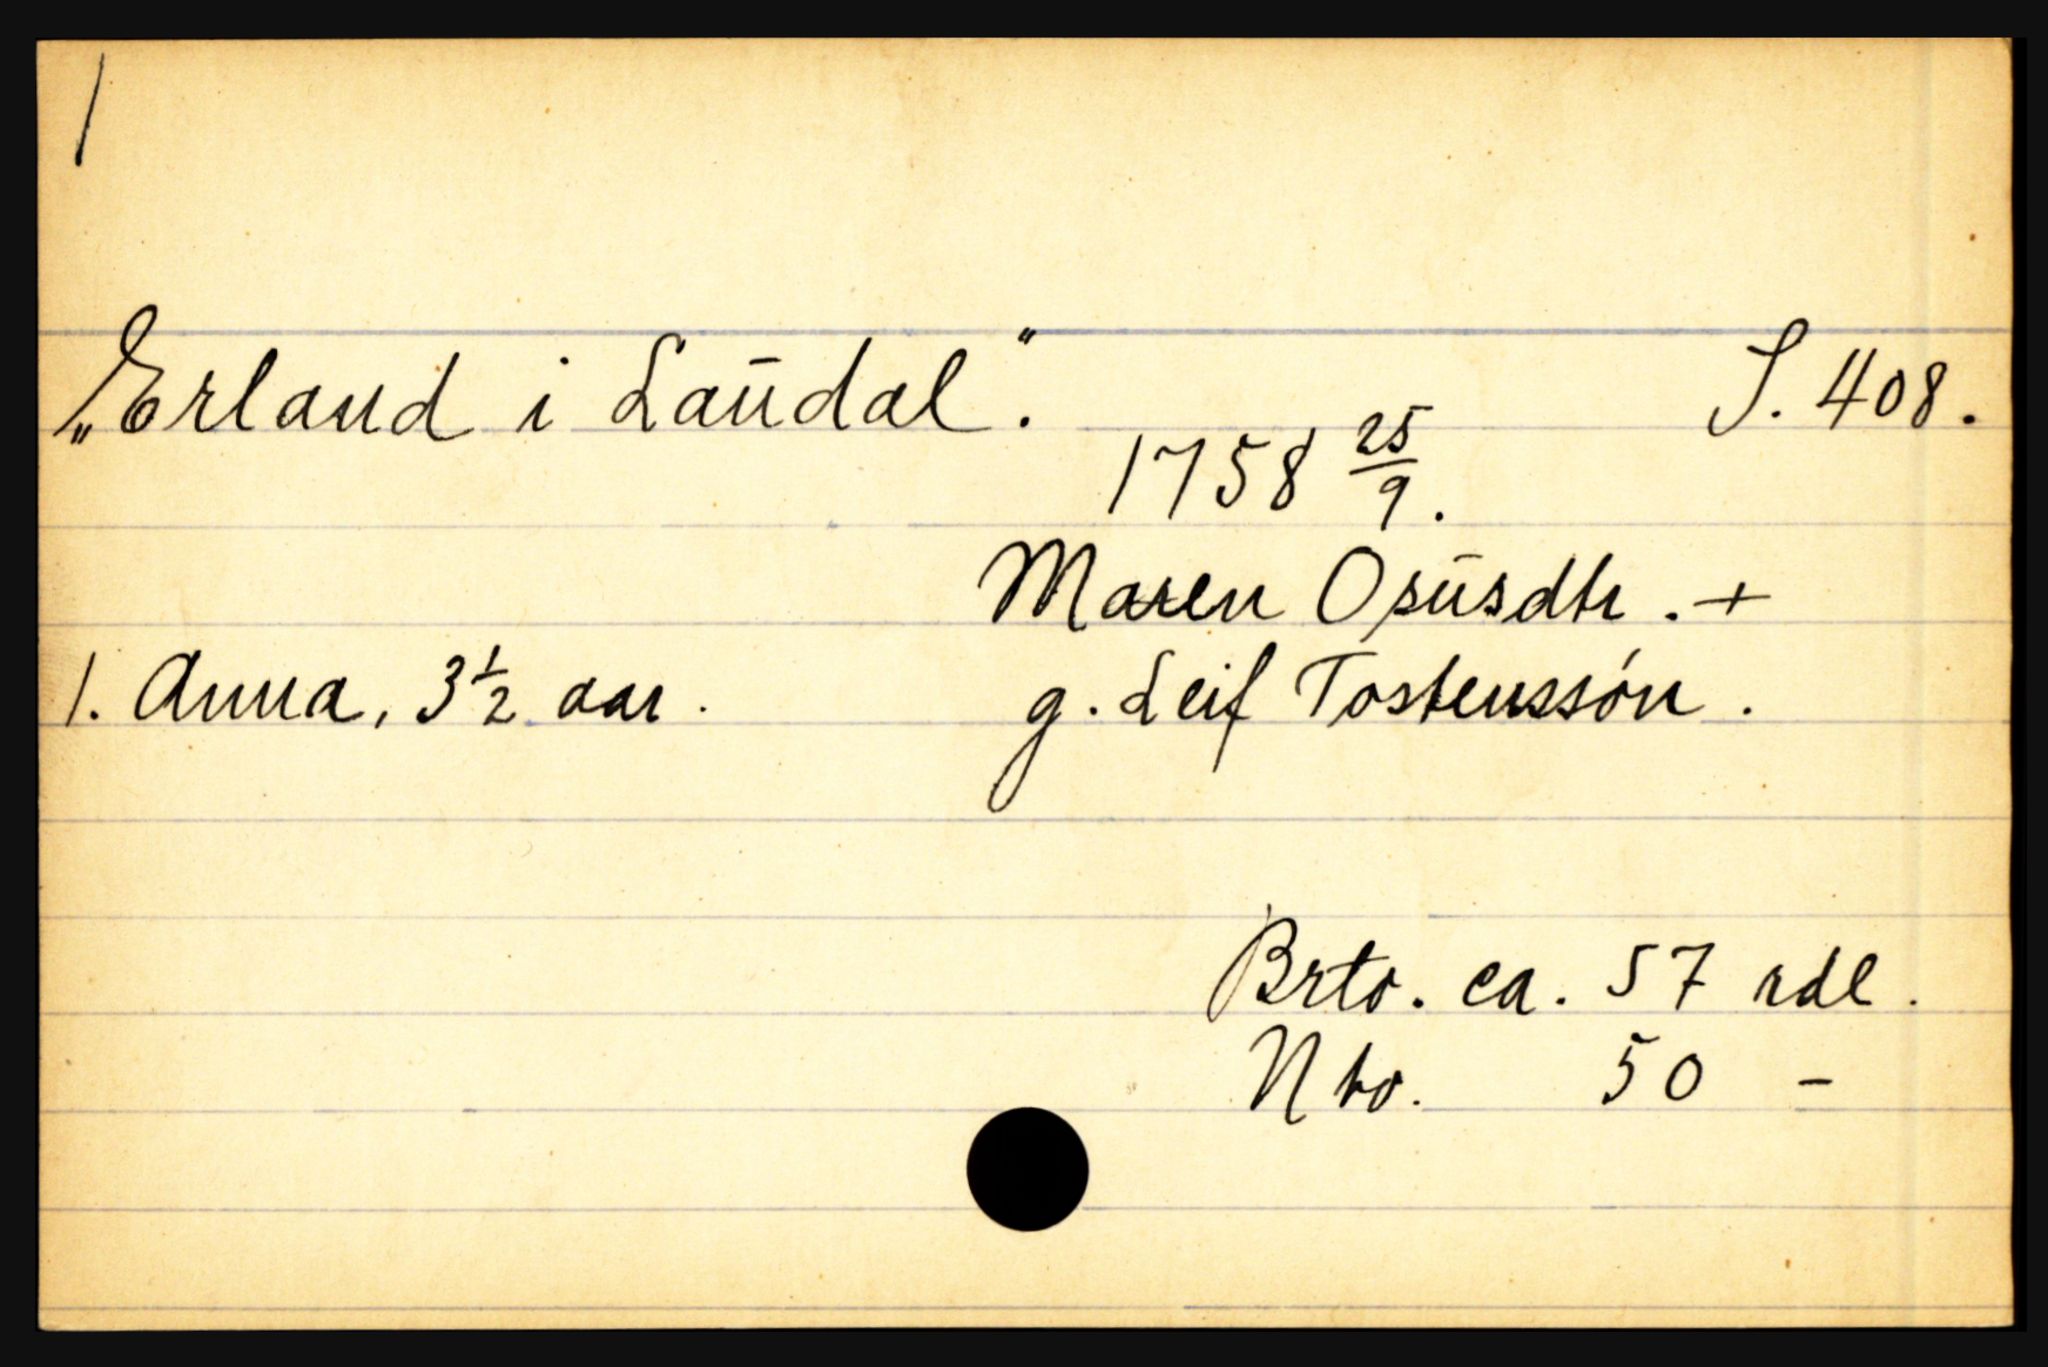 /
„Erland i Laūdal“. S. 408.
1758 25/9.
Maren Osūsdtr. +
1. Anna, 3 1/2 aar. g. Leif Tostenssón.
Brto. ca. 57 rdl.
Nto. 50 -